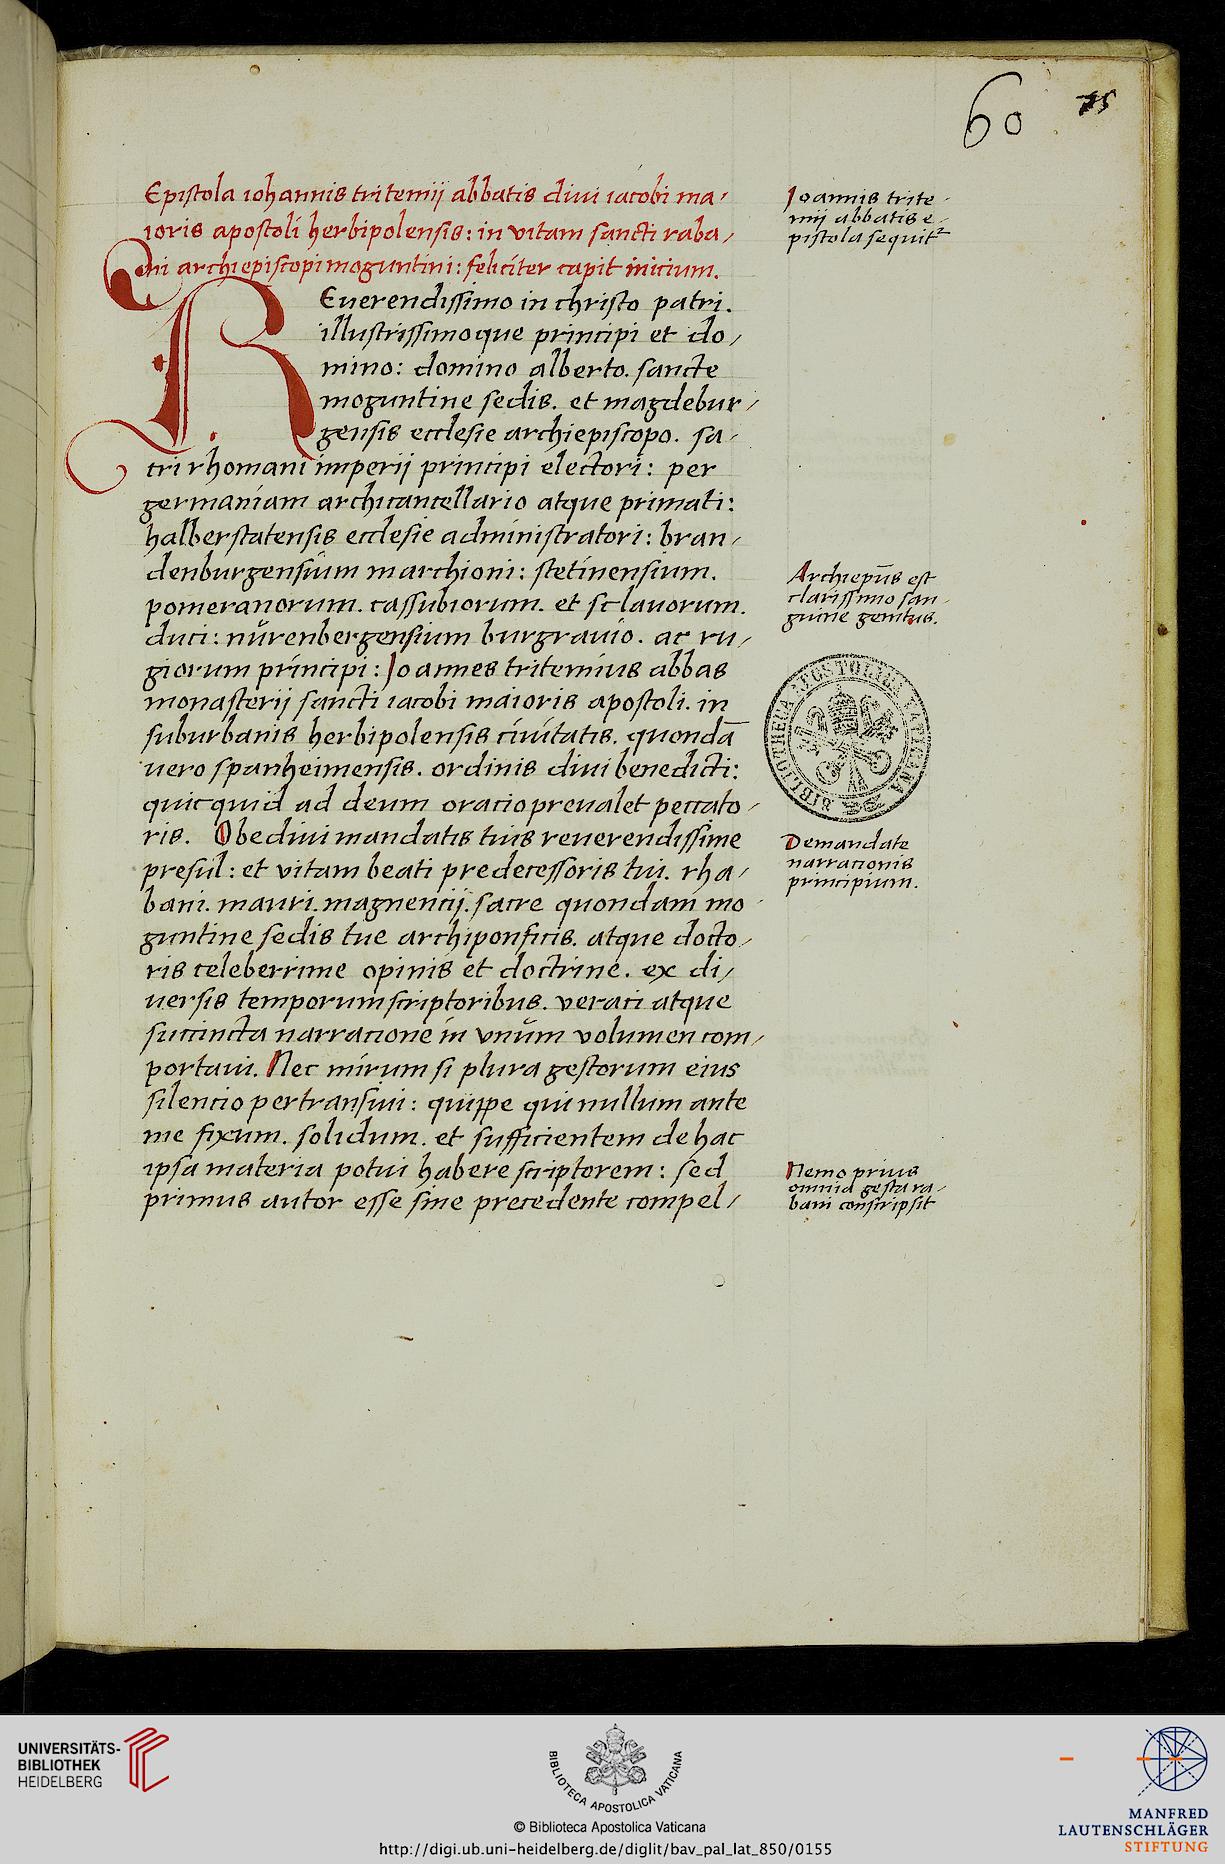 60 75
Epistola iohannis tritemij abbatis diui iacobi ma,
ioris apostoli herbipolensis: in vitam sancti raba,
ni archiepiscopi moguntini: feliciter capit inicium.
Joannis trite-
mij abbatis e-
pistola sequit²
REuerendissimo in christo patri.
illustrissimoque principi et do,
mino: domino alberto. sancte
moguntine sedis. et magdebur,
gensis ecclesie archiepiscopo. sa,
cri rhomani imperij principi electori: per
germaniam archicancellario atque primati:
halberstatensis ecclesie administratori: bran,
denburgensium marchioni: stetinensium.
pomeranorum. cassubiorum. et sclauorum.
duci: nürenbergensium burgrauio. ac ru,
giorum principi: Joannes tritemius abbas
monasterij sancti iacobi maioris apostoli. in
suburbanis herbipolensis ciuitatis. quondā
uero spanheimensis. ordinis diui benedicti:
quicquid ad deum oracio preualet peccato,
ris. Obediui mandatis tuis reuerendissime
presul: et vitam beati predecessoris tui. rha,
bani. mauri. magnencij. sacre quondam mo
guntine sedis tue archiponficis. atque docto,
ris celeberrime opinis et doctrine. ex di,
uersis temporum scriptoribus. veraci atque
succincta narracione in vnum volumen com,
portaui. Nec mirum si plura gestorum eius
silencio pertransiui: quippe qui nullum ante
me fixum. solidum. et sufficientem de hac
ipsa materia potui habere scriptorem: sed
primus autor esse sine precedente compel,
Archiepūs est
clarissimo san-
guine genitus.
BIBLIOTHECA APOSTOLICA VATICANA
Demandate
narracionis
principium.
Nemo prius
omnia gesta ra-
bani conscripsit
UNIVERSITÄTS-
BIBLIOTHEK
HEIDELBERG
BIBLIOTECA APOSTOLICA VATICANA
© Biblioteca Apostolica Vaticana
http://digi.ub.uni-heidelberg.de/diglit/bav_pal_lat_850/0155
MANFRED
LAUTENSCHLÄGER
STIFTUNG